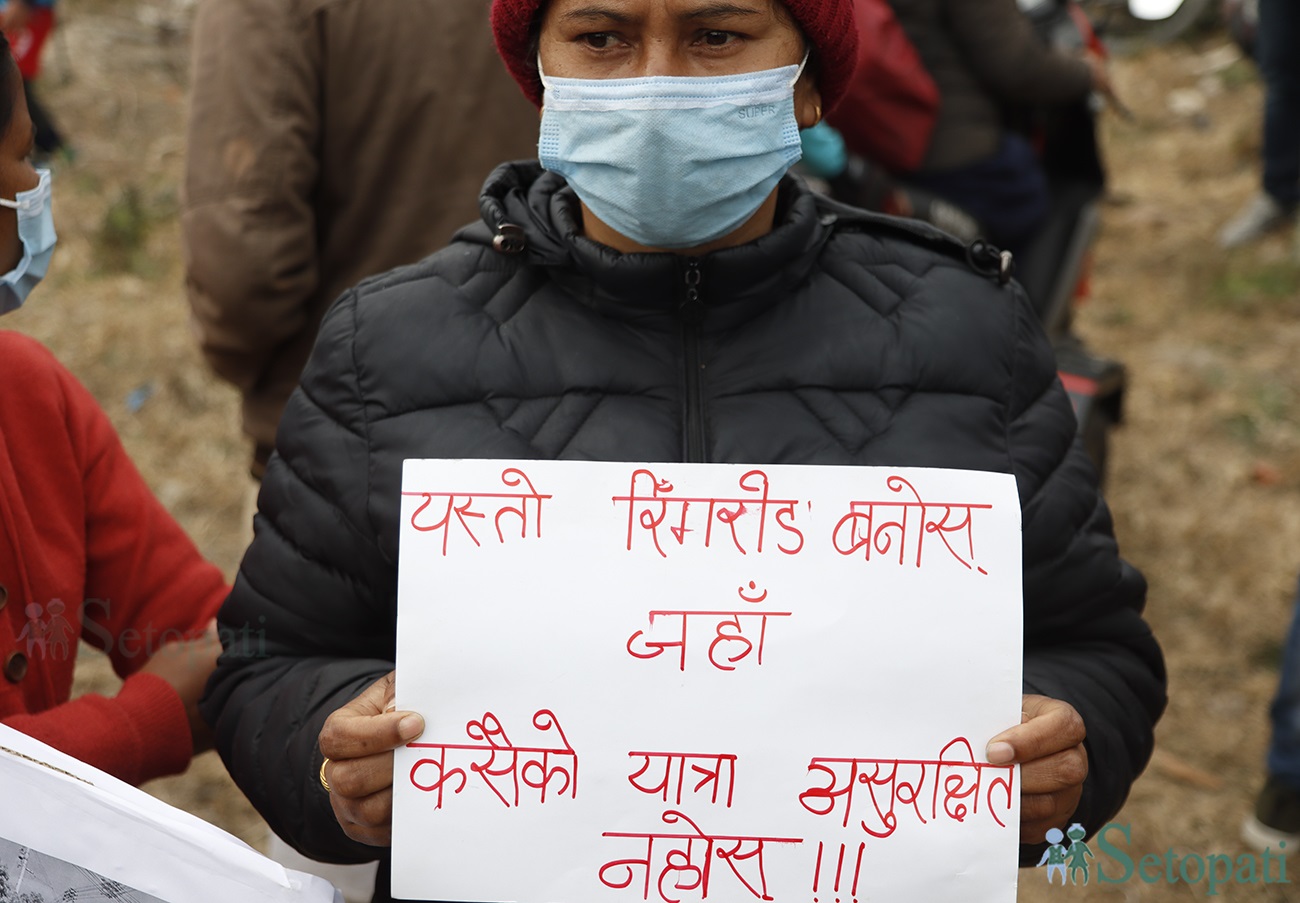 SUPER
यस्तो रिँगरोड बनोस्
जहाँ
कसैको यात्रा असुरक्षित
नहोस !!!
Setopati
Setopati